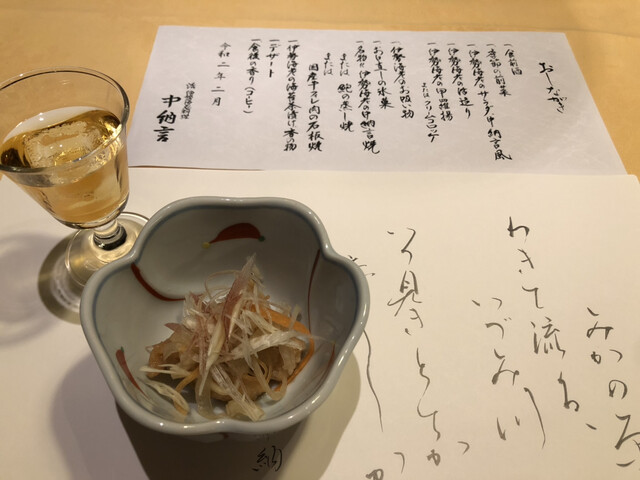 おしながき
一 食前酒
一 季節の前菜
一 伊勢海老のサラダ中納言風
一 伊勢海老の活造り
一 伊勢海老の甲羅揚
または クリームコロッケ
一 伊勢海老のお吸い物
一 お口直しの氷菓
一 名物 伊勢海老の中納言焼
または 鮑の蒸し焼
または 国産牛ヒレ肉の石板焼
一 伊勢海老の海苔茶漬け 香の物
一 デザート
一 食後の香り(コーヒー)
令和二年二月
活伊勢海老料理
中納言
みかの原
わきて流るゝ
いづみ川
いつ見きとてか
納